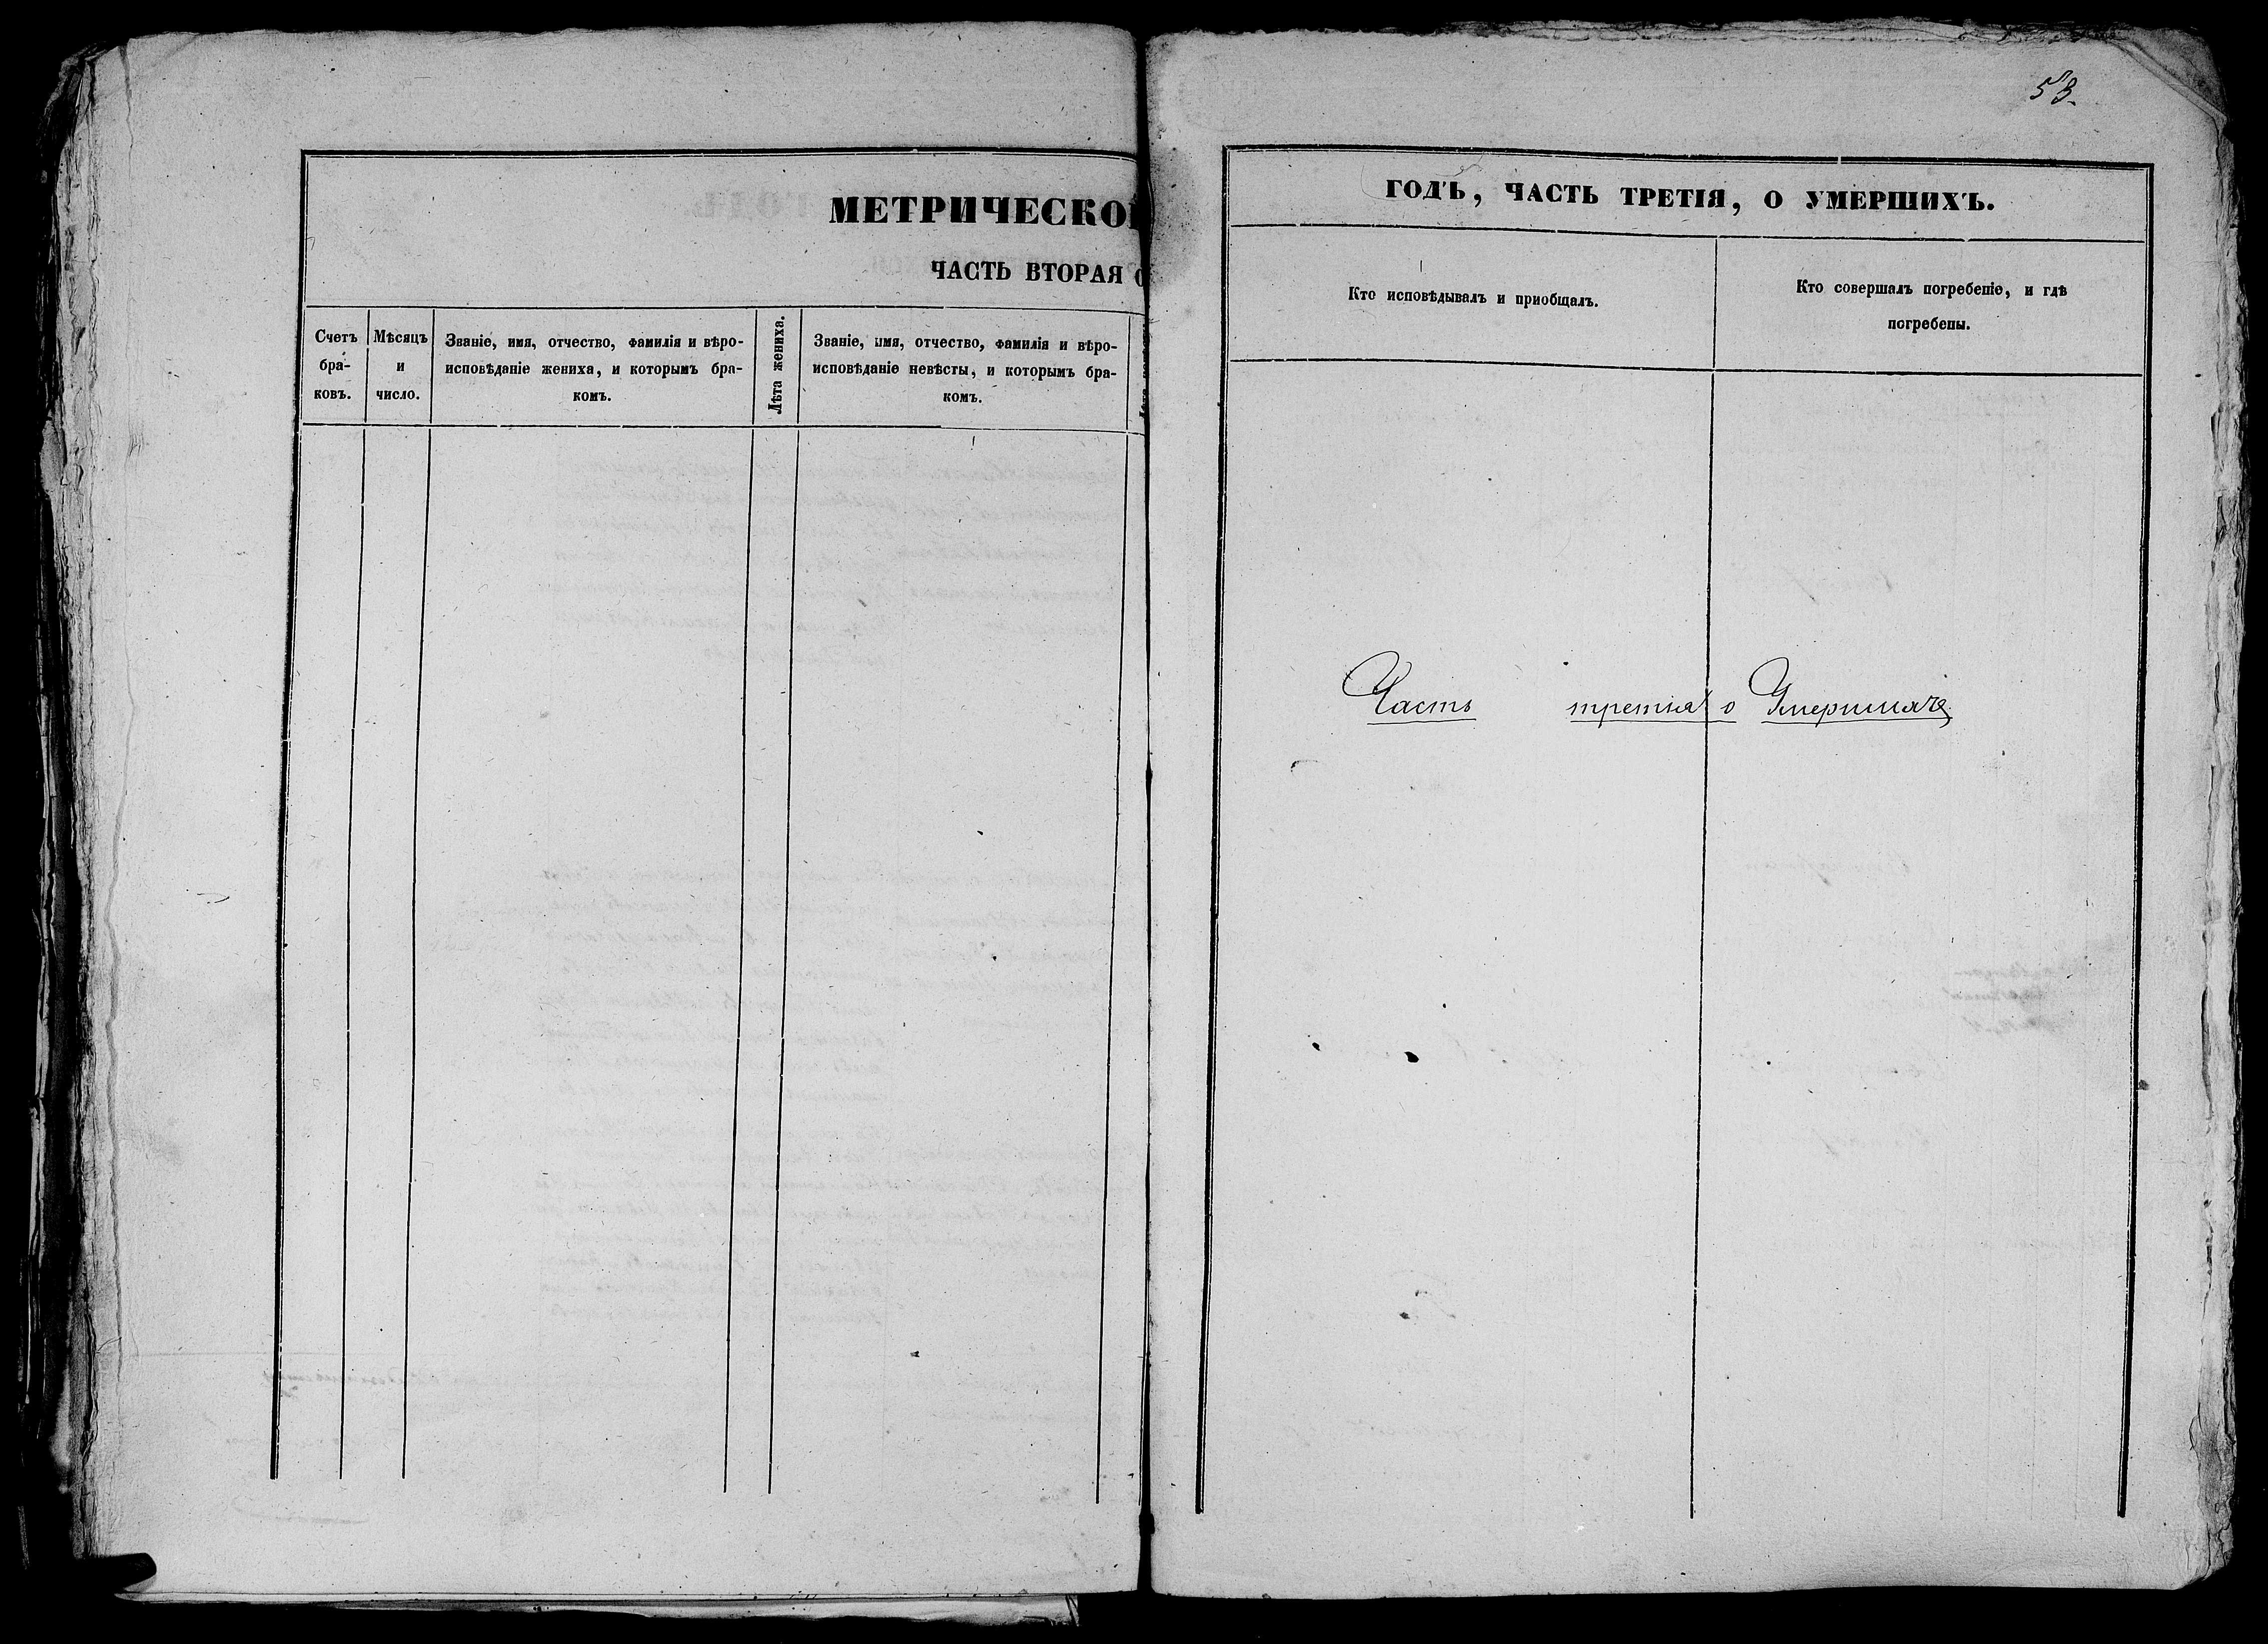 МЕТРИЧЕСКО
ЧАСТЬ ВТОРАЯ
Счетъ бра- ковъ.
Мѣсяцъ и число.
Званіе, имя, отчество, фамилія и вѣро-
исповѣданіе жениха, и которымъ бра-
комъ.
Лѣта жениха.
Званіе, имя, отчество, фамилія и вѣро-
исповѣданіе невѣсты, и которымъ бра-
комъ.
53.
ГОДЪ, ЧАСТЬ ТРЕТІЯ, О УМЕРШИХЪ.
Кто исповѣдывалъ и пріобщалъ.
Кто совершалъ погребеніе, и гдѣ
погребены.
Часть третья о Умершихъ